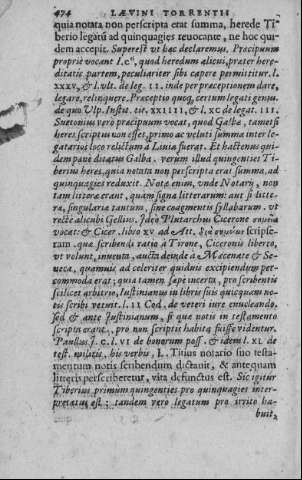 474 LÆVINI TORRENTII
quia notata non perscripta erat summa, herede Ti
berio legatū ad quinquagies reuocante, ne hoc qui-
dem accepit. Superest vt hæc declaremus. Præcipuum
propriè vocant I.Cᵗⁱ, quod heredum alicui, præter here-
ditatis partem, peculiariter sibi capere permittitur. l.
XXXV, & l. vlt. de leg. II. inde per præceptionem dare,
legare, relinquere. Præceptio quoq, certum legati genu.
de quo Vlp. Instit. tit. XXIIII, & l. XC de legat. III.
Suetonius verò præcipuum vocat, quod Galba, tametsi
heres scriptus non esset, primo ac veluti summa inter le-
gatarios loco relictum à Liuia fuerat. Et hactenus qui-
dem pauë ditatus Galba. verum illud quingenties Ti-
berius heres, quia notata non perscripta erat summa, ad
quinquagies reduxit. Notæ enim, vnde Notarij, non
tam litteræ erant, quàm signa litterarum: aut si litte-
ra, singularia tantum, siue coagmentis syllabarum. vt
rectè alicubi Gellius. Idē Plutarchus Cicerone σημεῖα
vocat: & Cicer. libro XV ad Att. διὰ σημείων scripse-
ram. quæ scribendi ratio à Tirone, Ciceronis liberto,
vt volunt, inuenta, aucta deinde à Mæcenate & Se-
neca, quamuis ad celeriter quiduis excipiendum per-
commoda erat; quia tamen sæpe incerta, pro scribentis
scilicet arbitrio, Iustinianus in libris suis quicquam no-
tis scribi vetuit. l. II Cod. de veteri iure enucleando,
sed & ante Iustinianum, si quæ notis in testamento
scripta erant, pro non scriptis habita fuisse videntur.
Paullus. l. C. l. VI de bonorum poss. & idem l. XL de
test. militis, his verbis, L. Titius notario suo testa-
mentum notis scribendum dictauit, & antequam
litteris perscriberetur, vita defunctus est. Sic igitur
Tiberius primùm quingenties pro quinquagies inter-
pretatus est; tandem verò legatum pro irrito ha-
buit,